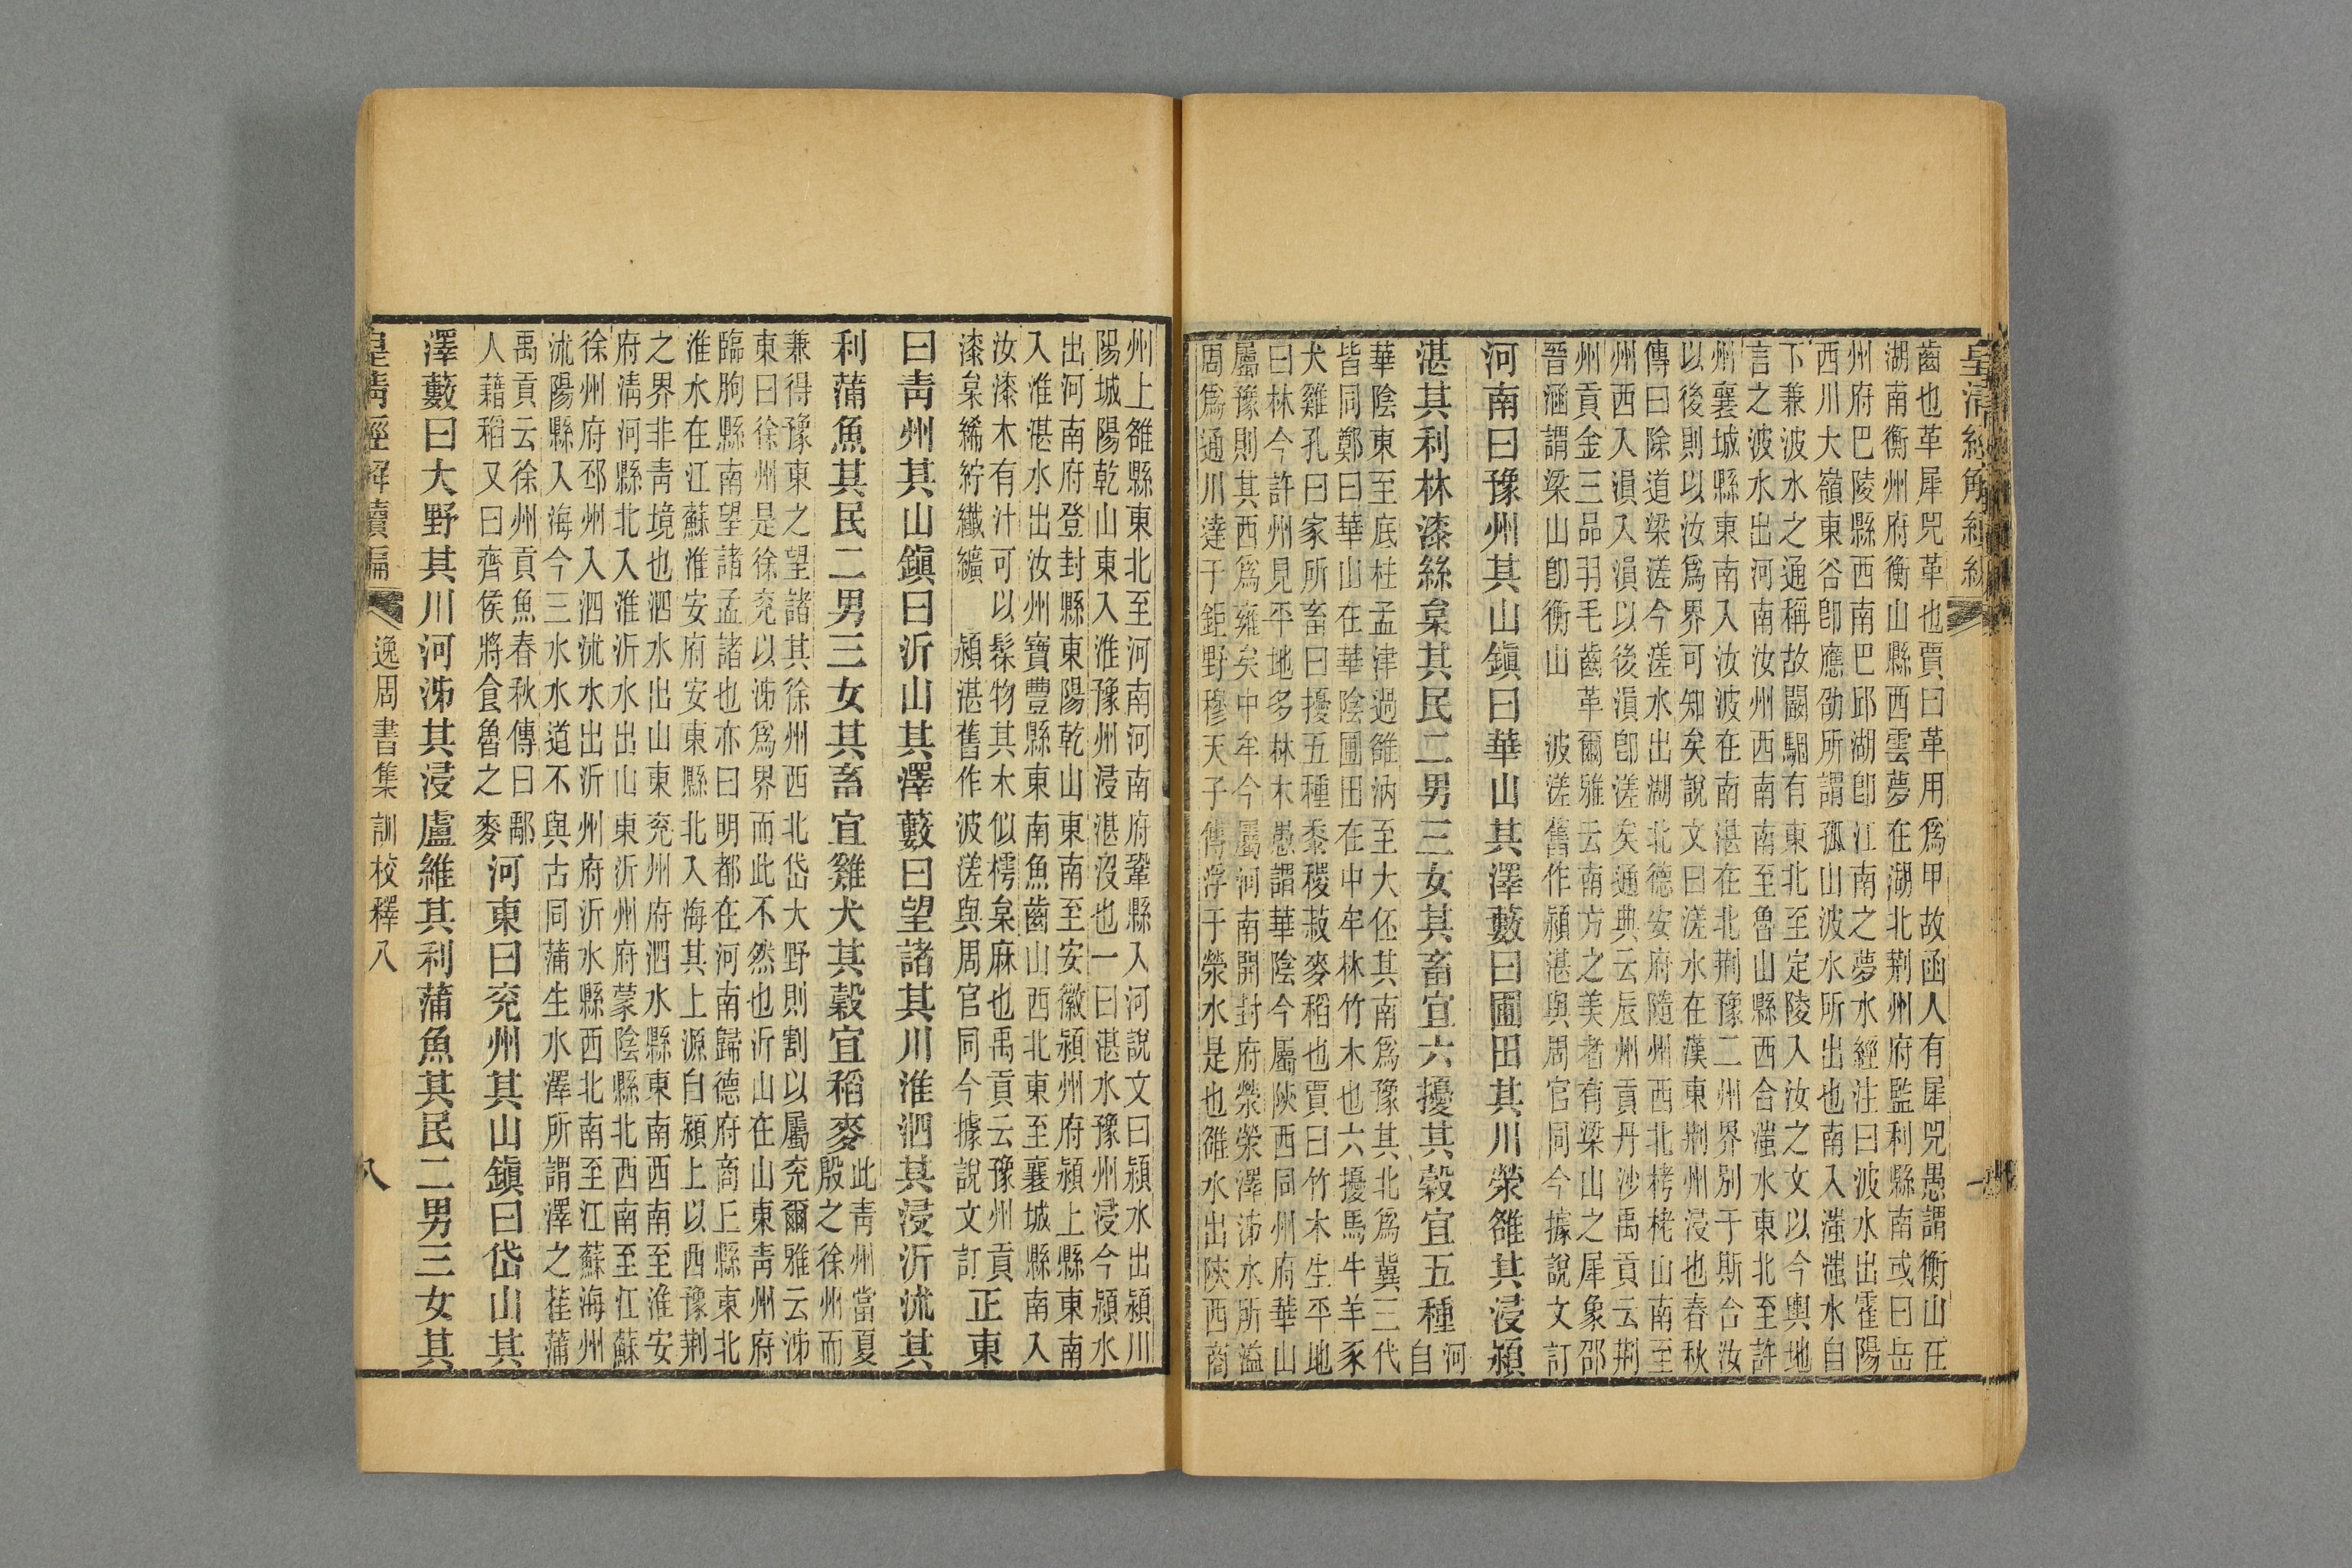 皇清經解
齒也革犀兕革也賈曰革用為甲故函人有犀兕愚謂衡山在
湖南衡州府衡山縣西雲夢在湖北荆州府監利縣南或曰岳
州府巴陵縣西南巴邱湖卽江南之夢水經注曰波水出霍陽
西川大嶺東谷卽應劭所謂孤山波水所出也南入滍滍水自
下兼波水之通稱故闞駰有東北至定陵入汝之文以今輿地
言之波水出河南汝州西南南至魯山縣西合滍水東北至許
州襄城縣東南入汝波在南湛在北荆豫二州界别于斯合汝
以後則以汝爲界可知矣說文曰溠水在漢東荆州浸也春秋
傳曰除道梁溠今溠水出湖北德安府隨州西北栲栳山南至
州西入溳入溳以後溳卽溠矣通典云辰州貢丹沙禹貢云荆
州貢金三品羽毛齒革爾雅云南方之美者有梁山之犀象邵
晉涵謂梁山卽衡山　波溠舊作潁湛與周官同今據說文訂
河南曰豫州其山鎭曰華山其澤藪曰圃田其川滎雒其浸潁
湛其利林漆絲枲其民二男三女其畜宜六擾其穀宜五種河自
華陰東至底柱孟津過雒汭至大伾其南爲豫其北爲冀三代
皆同鄭曰華山在華陰圃田在中牟林竹木也六擾馬牛羊豕
犬雞孔曰家所畜曰擾五種黍稷菽麥稻也賈曰竹木生平地
曰林今許州見平地多林木愚謂華陰今屬陝西同州府華山
屬豫則其西爲雍矣中牟今屬河南開封府滎滎澤泲水所溢
周爲通川達于鉅野穆天子傳浮于滎水是也雒水出陝西商
州上雒縣東北至河南河南府鞏縣入河說文曰潁水出潁川
陽城陽乾山東入淮豫州浸湛沒也一曰湛水豫州浸今潁水
出河南府登封縣東陽乾山東南至安徽潁州府潁上縣東南
入淮湛水出汝州寶豐縣東南魚齒山西北東至襄城縣南入
汝漆木有汁可以髹物其木似樗枲麻也禹貢云豫州貢
漆枲絺紵纖纊　潁湛舊作波溠與周官同今據說文訂正東
曰靑州其山鎭曰沂山其澤藪曰望諸其川淮泗其浸沂沭其
利蒲魚其民二男三女其畜宜雞犬其穀宜稻麥此靑州當夏殷之徐州而
兼得豫東之望諸其徐州西北岱大野則割以屬兖爾雅云泲
東曰徐州是徐兖以泲爲界而此不然也沂山在山東靑州府
臨朐縣南望諸孟諸也亦曰明都在河南歸德府商丘縣東北
淮水在江蘇淮安府安東縣北入海其上源自潁上以西豫荆
之界非靑境也泗水出山東兖州府泗水縣東南西南至淮安
府淸河縣北入淮沂水出山東沂州府蒙陰縣北西南至江蘇
徐州府邳州入泗沭水出沂州府沂水縣西北南至江蘇海州
沭陽縣入海今三水水道不與古同蒲生水澤所謂澤之萑蒲
禹貢云徐州貢魚春秋傳曰鄅
人藉稻又曰齊侯將食魯之麥河東曰兖州其山鎭曰岱山其
澤藪曰大野其川河泲其浸盧維其利蒲魚其民二男三女其
皇淸經解續編　逸周書集訓校釋八　八